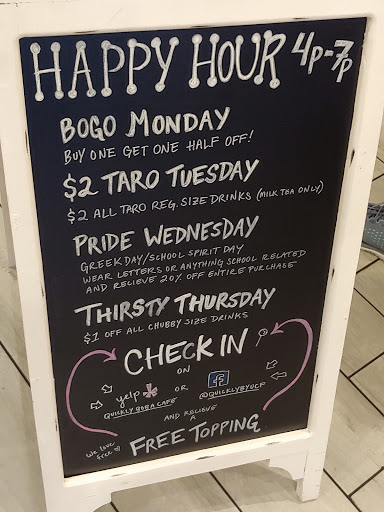 HAPPY HOUR 4P-7P
BOGO MONDAY
BUY ONE GET ONE HALF OFF!
$2 TARO TUESDAY
$2 ALL TARO REG. SIZE DRINKS (MILK TEA ONLY)
PRIDE WEDNESDAY
GREEK DAY/SCHOOL SPIRIT DAY
WEAR LETTERS OR ANYTHING SCHOOL RELATED
AND RELIEVE 20% OFF ENTIRE PURCHASE
THIRSTY THURSDAY
$1 OFF ALL CHUBBY SIZE DRINKS
CHECK IN
ON
yelp OR f
QUICKLY BOBA CAFE @QUICKLYBYUCF
AND RELIEVE A
We love
Free
FREE TOPPING